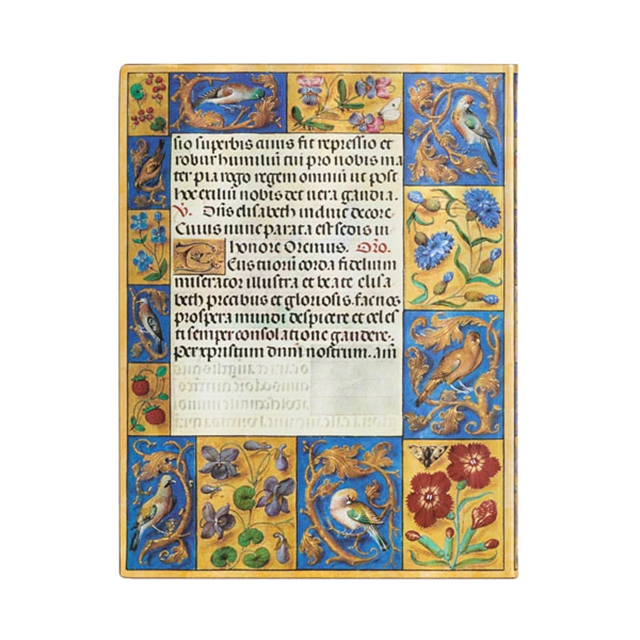 sio superbis cuius fit repressio et
robur humiliū cui pro nobis ma
ter pia rogo regem omniū ut post
hoc exiliū nobis det uera gaudia.
V. Dūs elisabeth indute decore.
Cuius nunc parata est sedis in
honore Oremus. Oro.
Deus tuorū corda fidelium
miserator illustra et beate elisa
beth precibus et gloriosis. fac nos
prospera mundi despicere et celes
ti semper consolatione gaudere.
Per xpristum dnm̄ nostrum. am̄